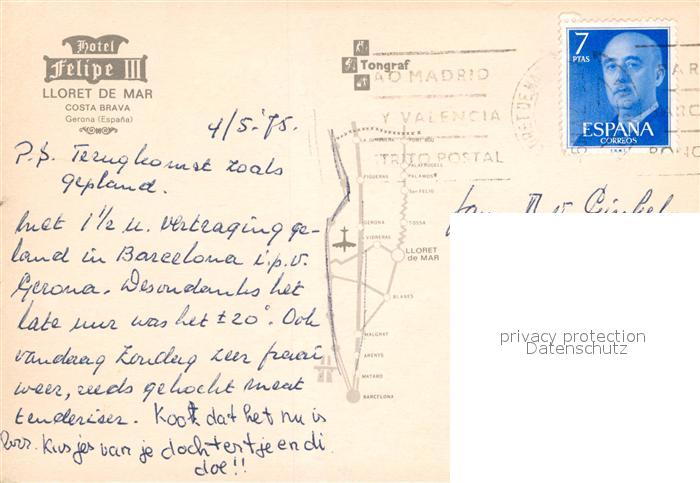 Hotel
Felipe III
LLORET DE MAR
COSTA BRAVA
Gerona (España)
4/5-'75.
P.S. Terugkomst zoals
gepland.
Met 1½ u. vertraging ge-
land in Barcelona i.p.v.
Gerona. Desondanks het
late uur was het ±20°. Ook
vandaag Zondag zeer fraai
weer, reeds gekocht meat
tenderiser. Kook dat het nu is
Kusjes van je dochtertje en di
doe!!
Tongraf
MADRID
Y VALENCIA
DISTRITO POSTAL
7
PTAS
ESPAÑA
CORREOS
PORT BOU
PALAFRUGELL
PALAMOS
San FELIO
FIGUERAS
GERONA
TOSSA
VIDRERAS
LLORET
de MAR
BLANES
MALGRAT
ARENYS
MATARO
BARCELONA
v. Ginkel
privacy protection
Datenschutz